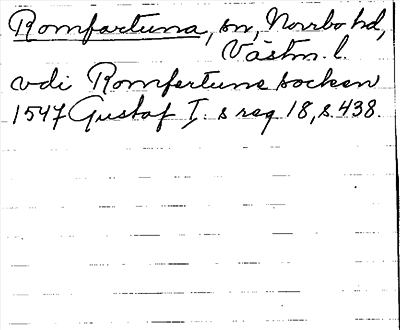 Romfartuna, sn, Norrbo hd,
Västm. l.
vdi Romfertune socken
1547 Gustaf I. s reg 18, s. 438.